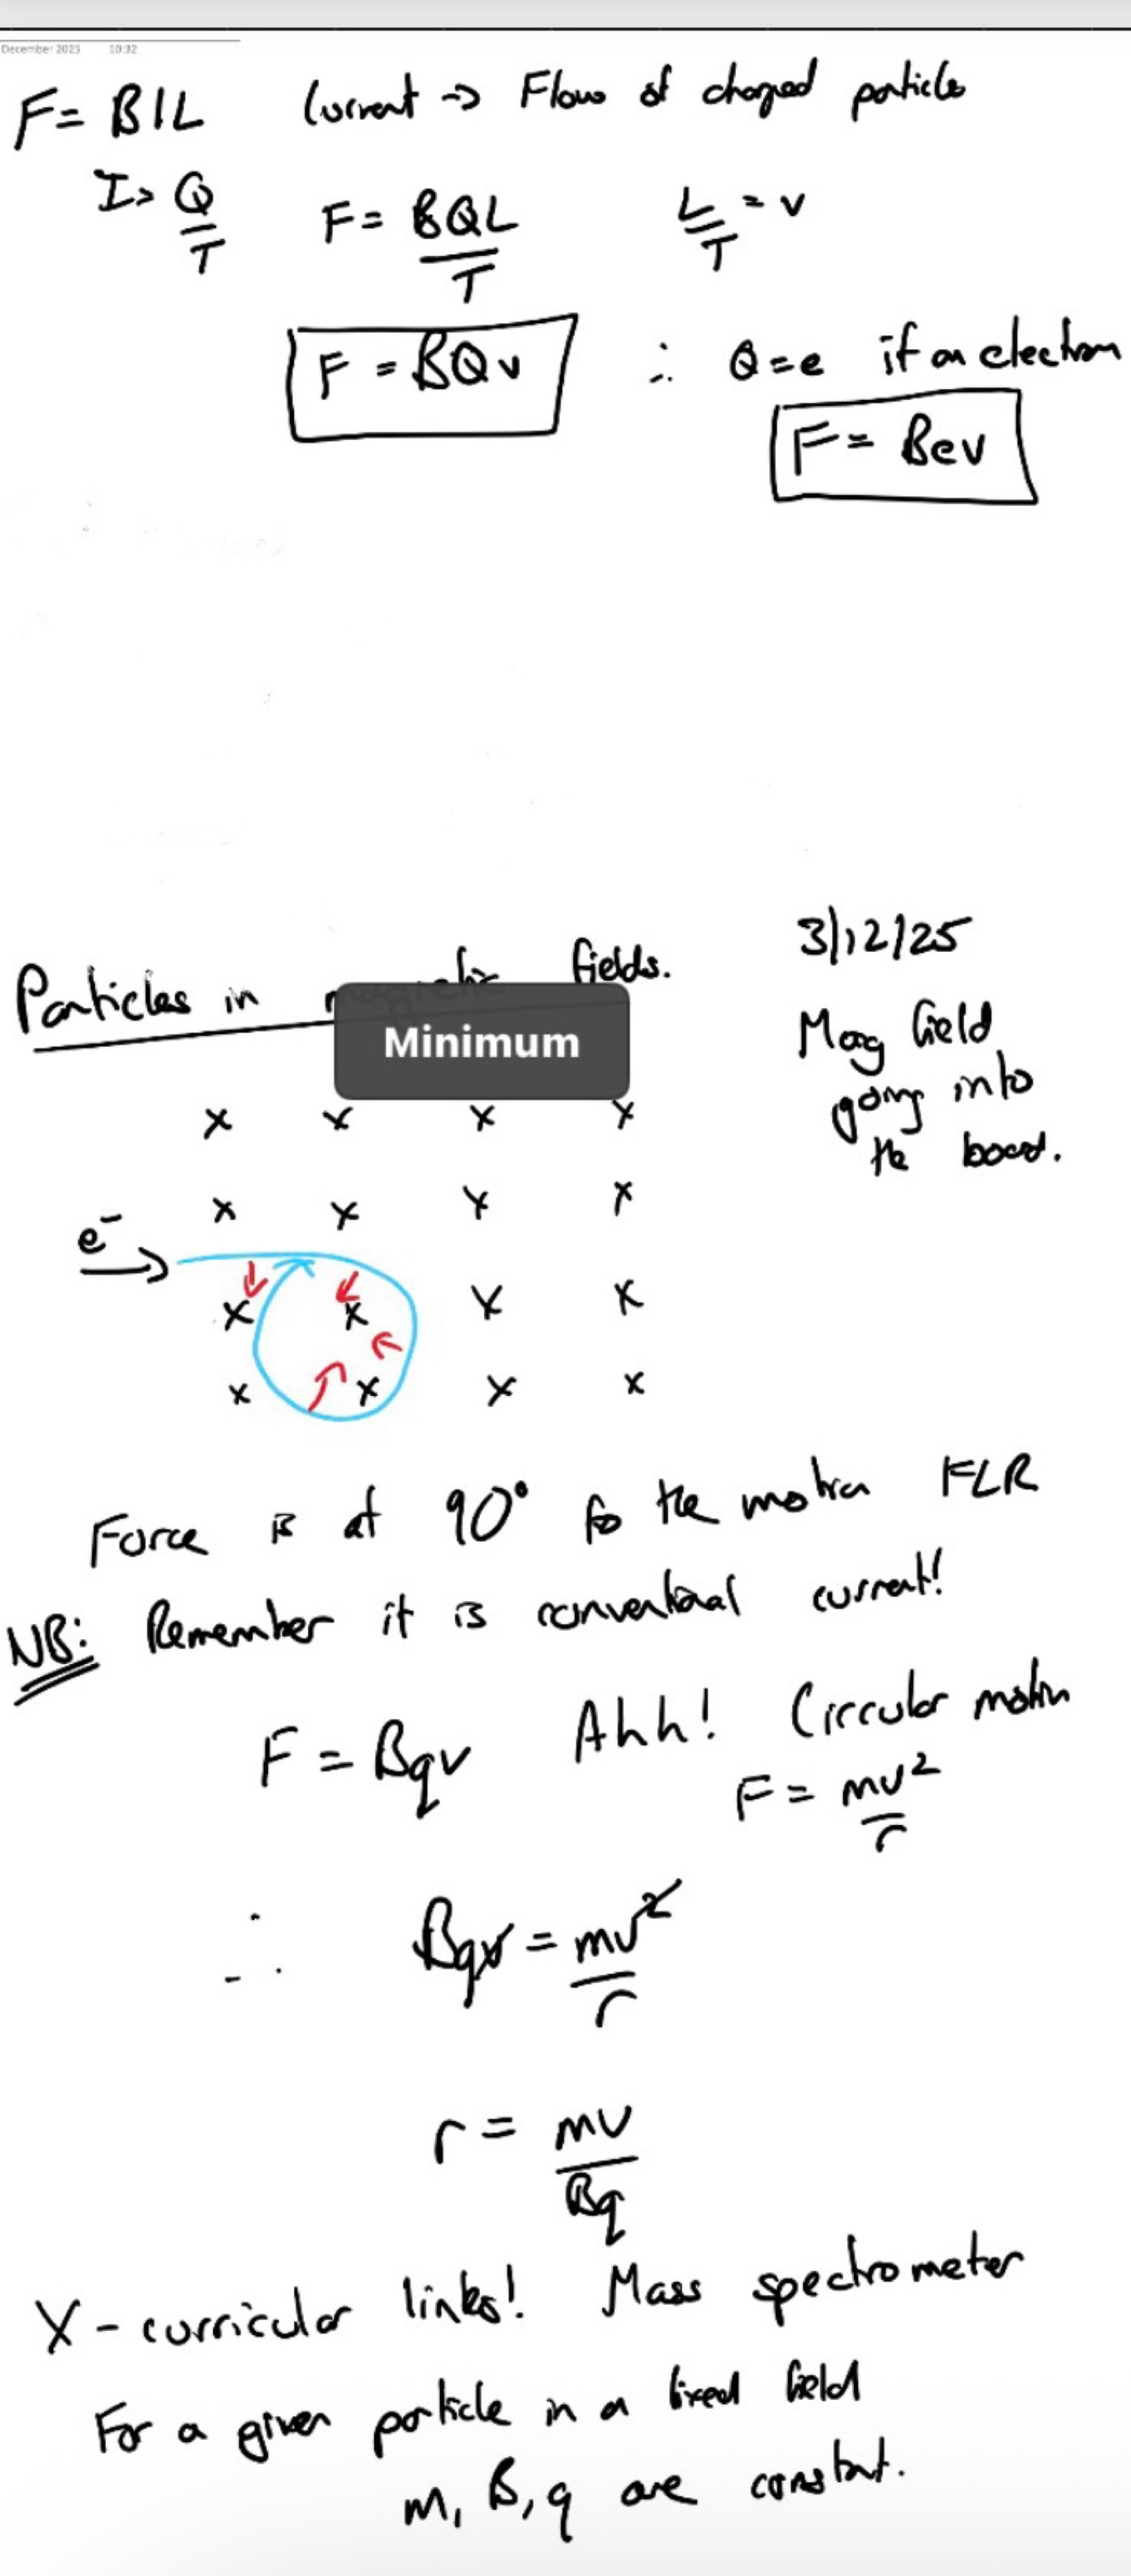 December 2025 10:32
F = BIL Current → Flow of charged particles
I = Q/T F = BQL/T L/T = v
F = BQv ∴ Q = e if an electron
F = Bev
3/12/25
Particles in magnetic fields.
Minimum
Mag field going into the board.
x x x x
x x x x
e⁻ →
x x x x
x x x x
Force is at 90° to the motion FLR
NB: Remember it is conventional current!
F = Bqv Ahh! Circular motion
F = mv²/r
∴ Bqv = mv²/r
r = mv/Bq
X-curricular links! Mass spectrometer
For a given particle in a fixed field
m, B, q are constant.